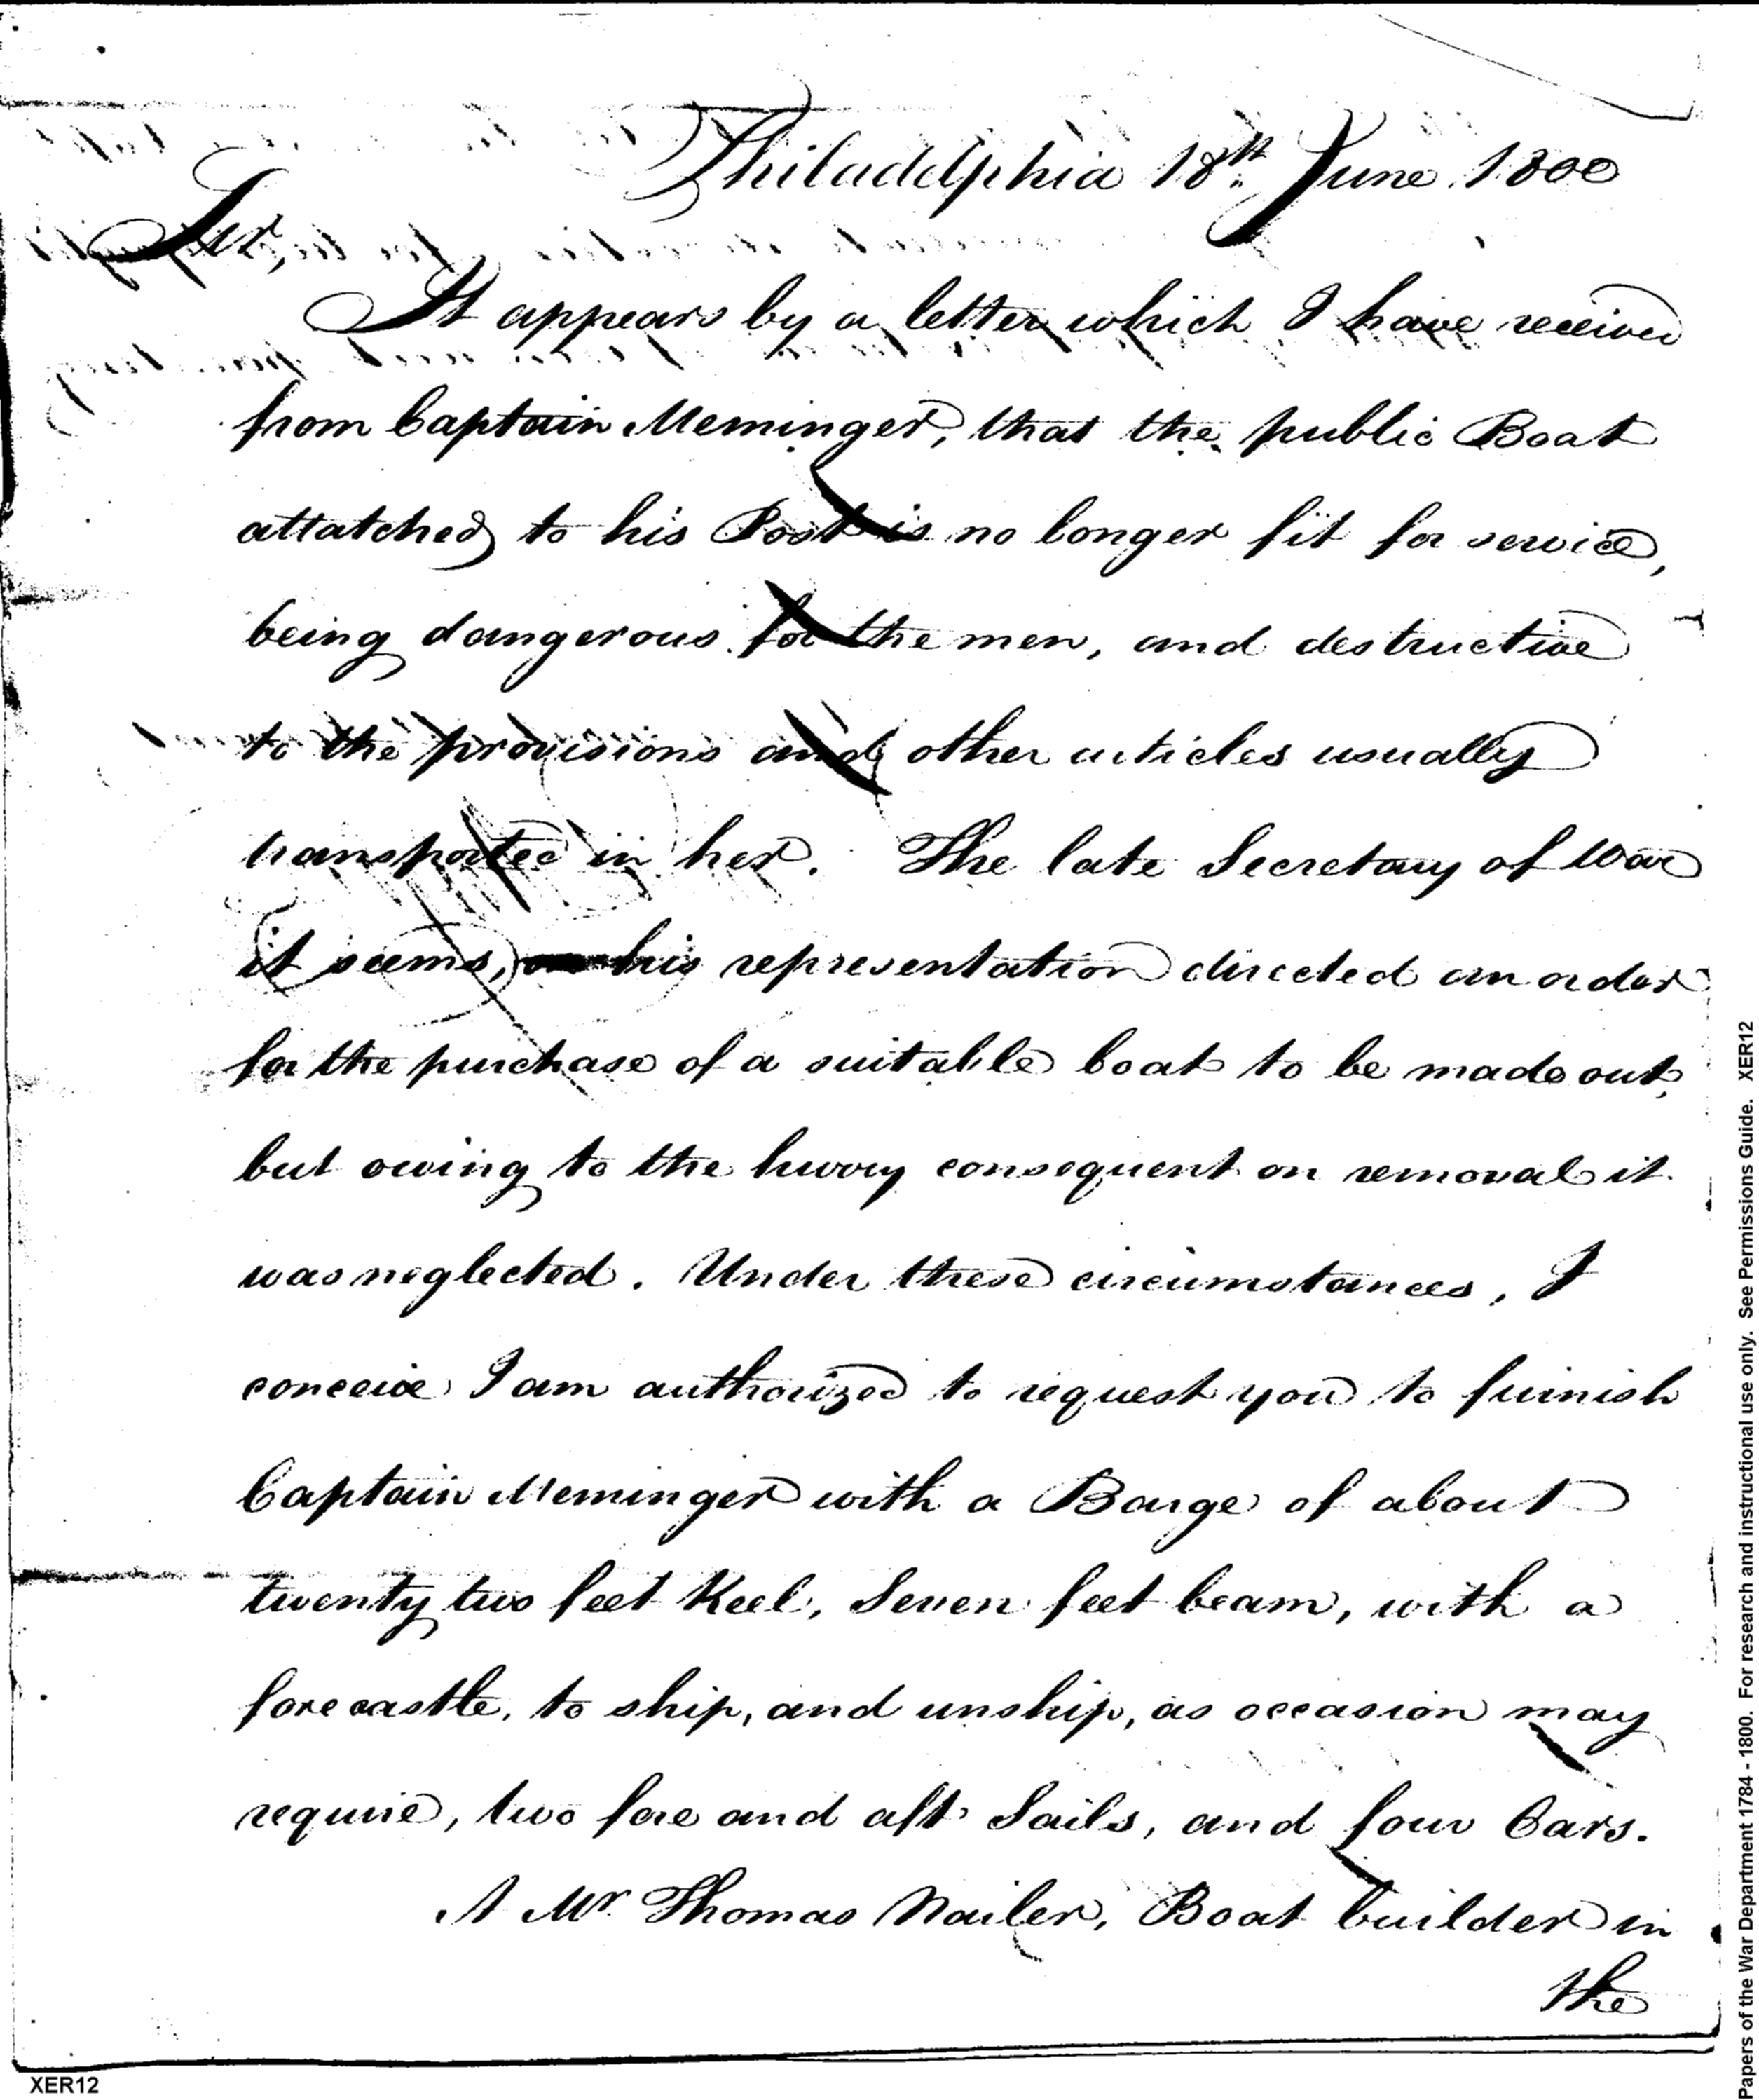 Philadelphia 18th June 1800
Sir,
It appears by a letter which I have received
from Captain Meminger, that the public Boat
attatched to his Post is no longer fit for service,
being dangerous for the men, and destructive
to the provisions and other articles usually
transported in her. The late Secretary of War
it seems, on his representation directed an order
for the purchase of a suitable boat to be made out,
but owing to the hurry consequent on removal it
was neglected. Under these circumstances, I
conceive I am authorized to request you to furnish
Captain Meminger with a Barge of about
twenty two feet Keel, Seven feet beam, with a
fore castle, to ship, and unship, as occasion may
require, two fore and aft Sails, and four Oars.
A Mr. Thomas Nailer, Boat builder in
the
XER12
Papers of the War Department 1784 - 1800. For research and instructional use only. See Permissions Guide. XER12